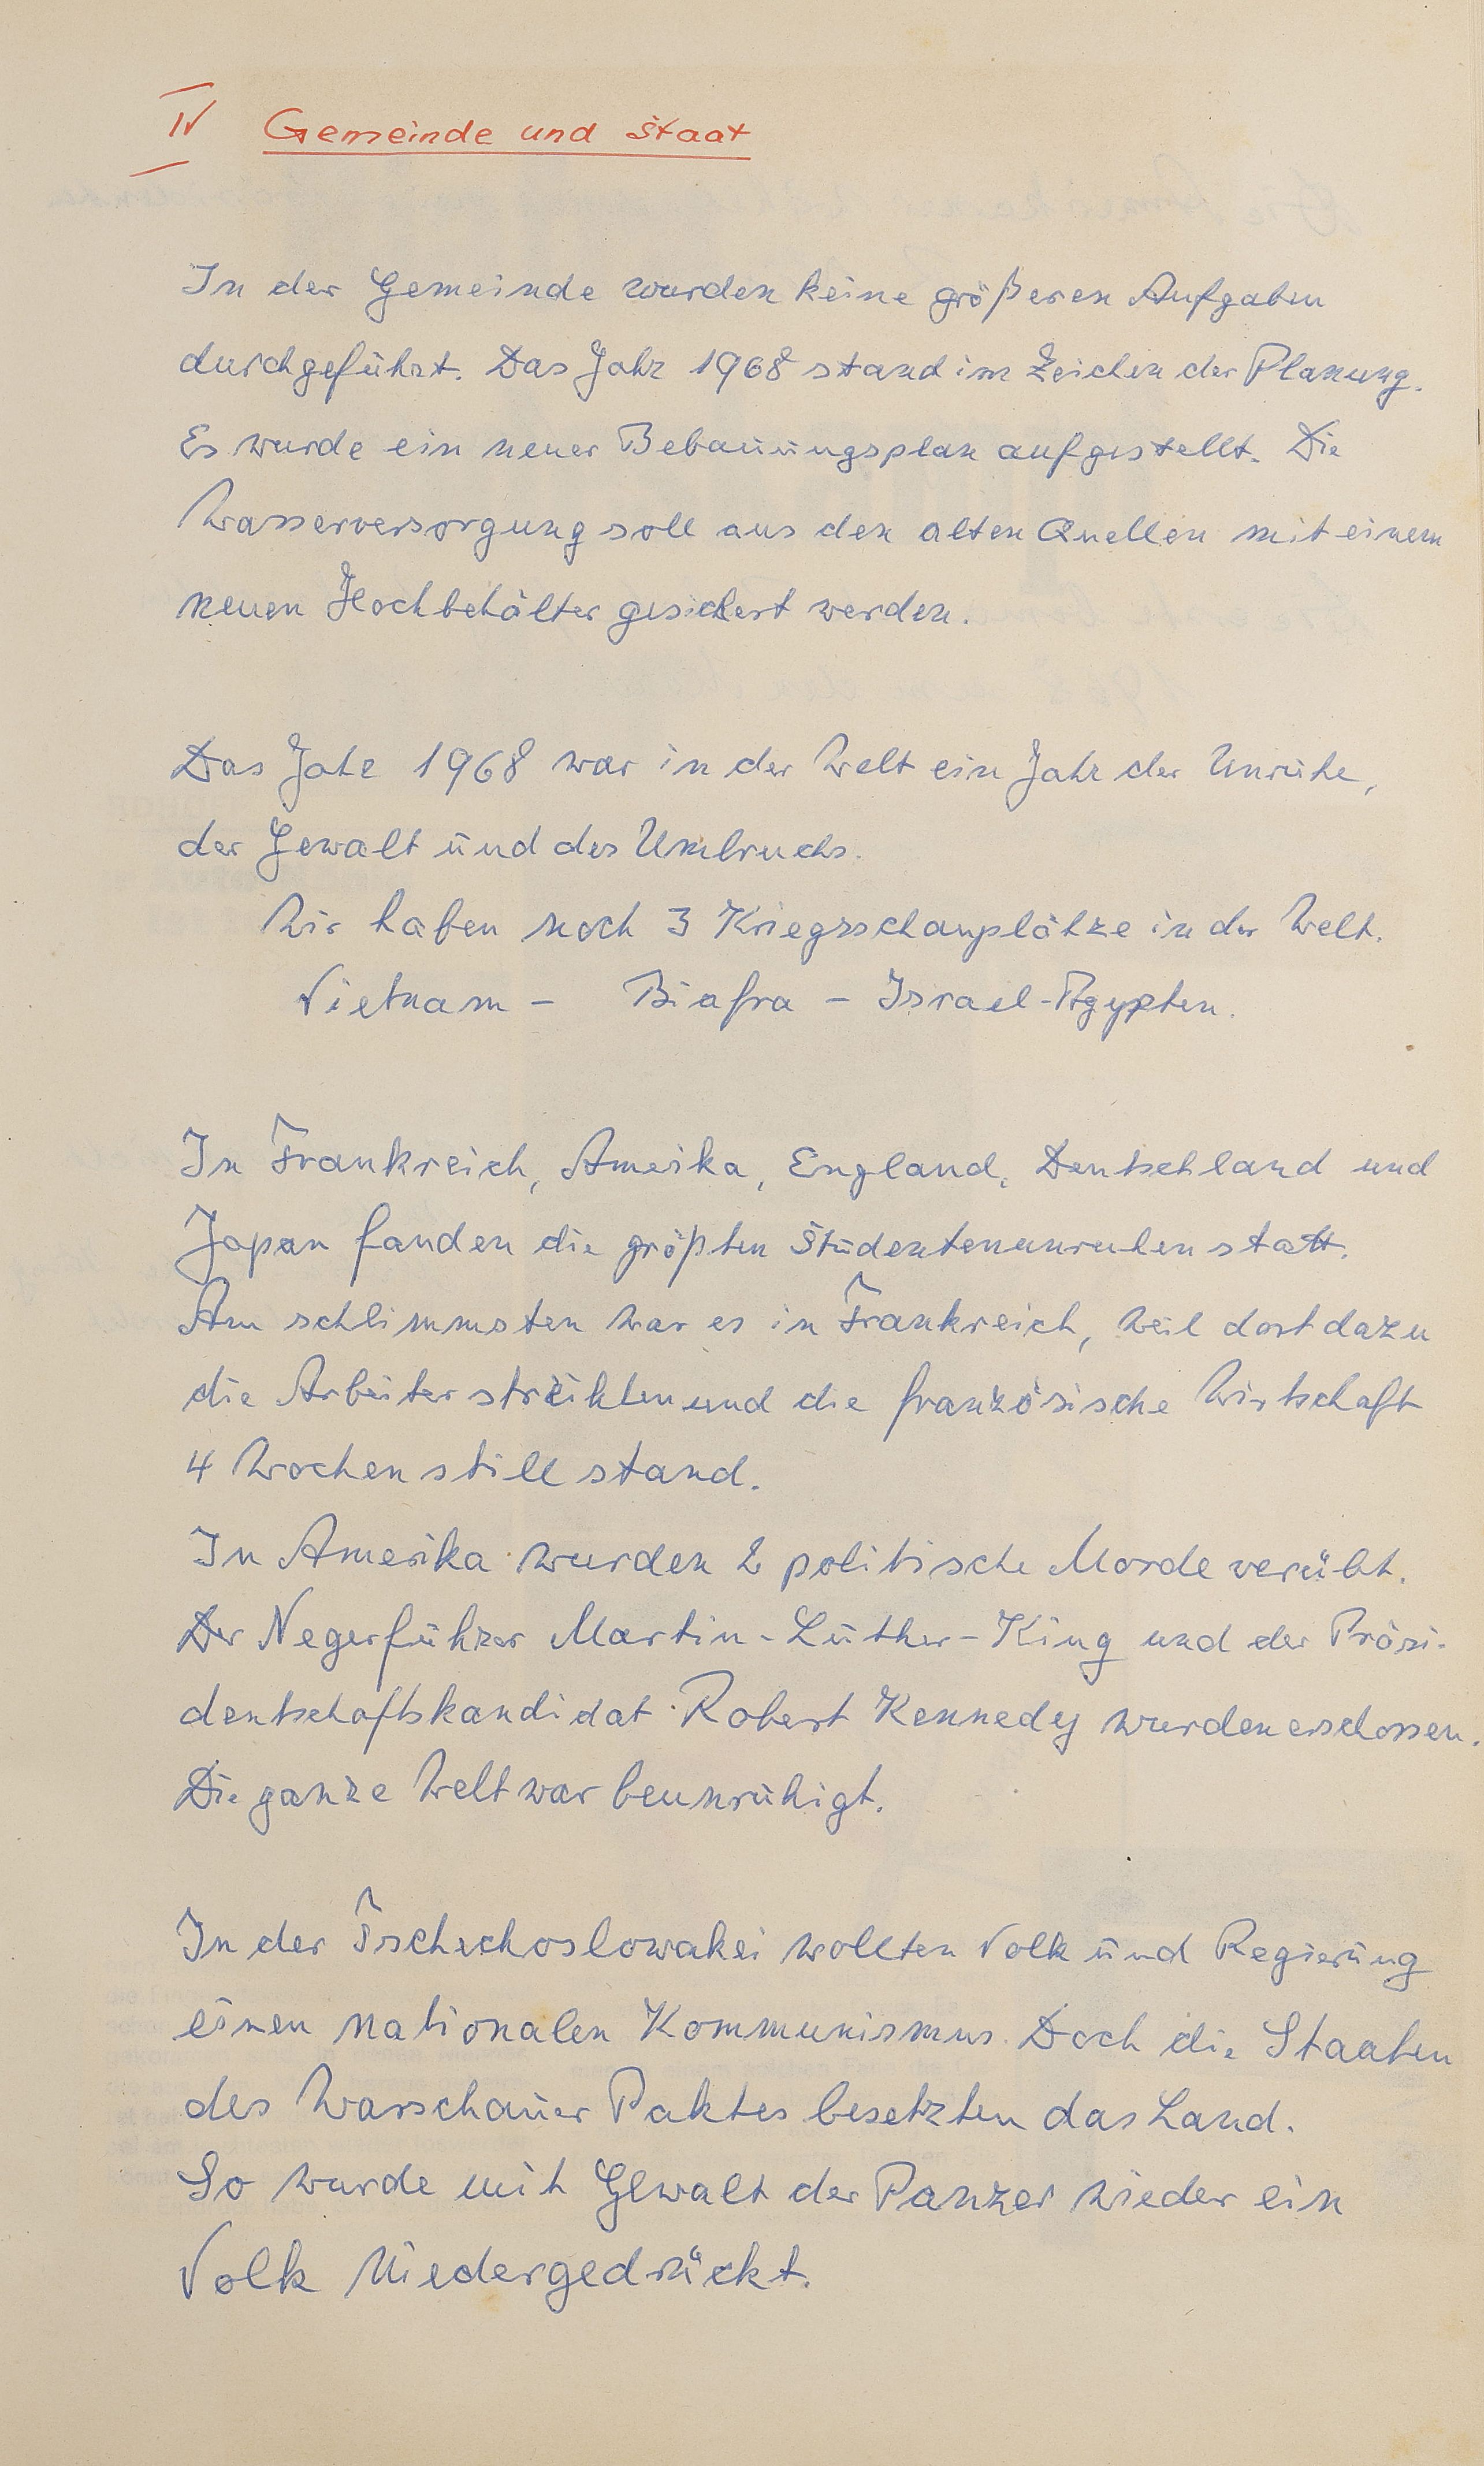 IV Gemeinde und Staat
In der Gemeinde wurden keine größeren Aufgaben
durchgeführt. Das Jahr 1968 stand im Zeichen der Planung.
Es wurde ein neuer Bebauungsplan aufgestellt. Die
Wasserversorgung soll aus den alten Quellen mit einem
neuen Hochbehälter gesichert werden.
Das Jahr 1968 war in der Welt ein Jahr der Unruhe,
der Gewalt und des Umbruchs.
Wir haben noch 3 Kriegsschauplätze in der Welt.
Vietnam - Biafra - Israel-Ägypten.
In Frankreich, Amerika, England, Deutschland und
Japan fanden die größten Studentenunruhen statt.
Am schlimmsten war es in Frankreich, weil dort dazu
die Arbeiter streikten und die französische Wirtschaft
4 Wochen still stand.
In Amerika wurden 2 politische Morde verübt.
Der Negerführer Martin-Luther-King und der Präsi-
dentschaftskandidat Robert Kennedy wurden erschossen.
Die ganze Welt war beunruhigt.
In der Tschechoslowakei wollten Volk und Regierung
einen nationalen Kommunismus. Doch die Staaten
des Warschauer Paktes besetzten das Land.
So wurde mit Gewalt der Panzer wieder ein
Volk niedergedrückt.